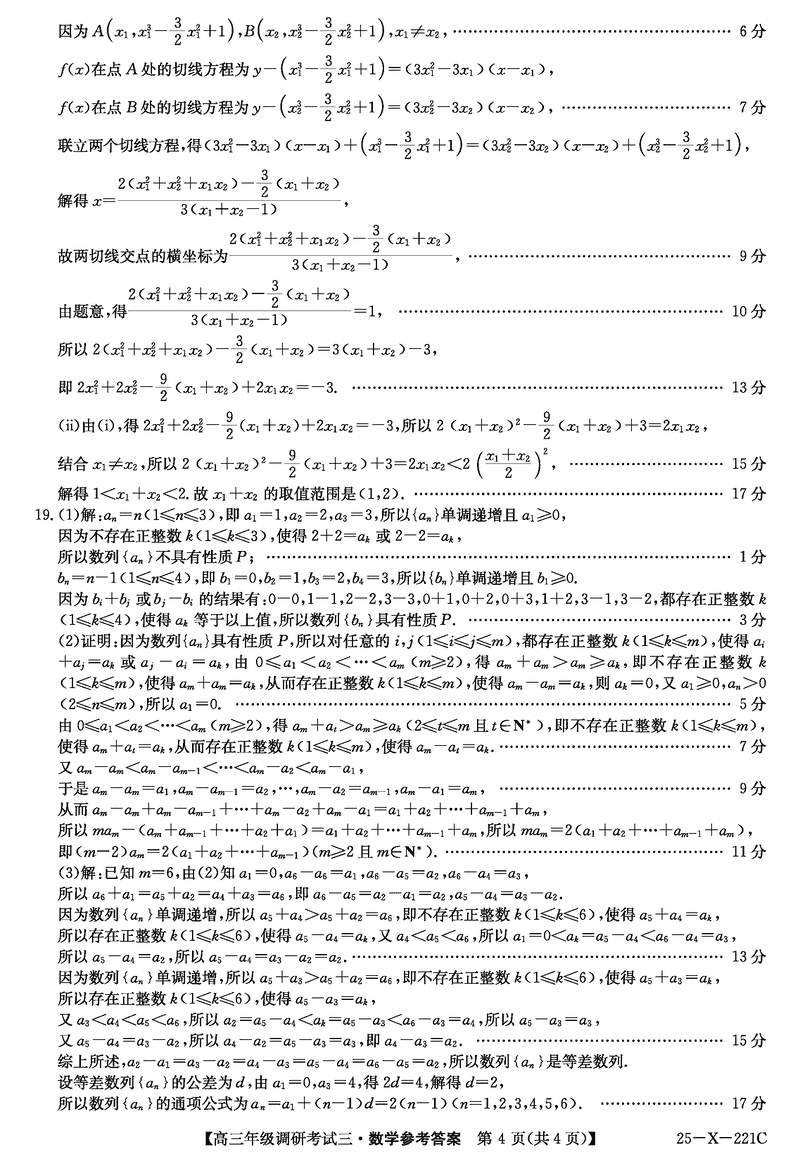 因为 A(x₁,x₁³−3/2x₁²+1),B(x₂,x₂³−3/2x₂²+1),x₁≠x₂, …… 6 分
f(x)在点 A 处的切线方程为 y−(x₁³−3/2x₁²+1)=(3x₁²−3x₁)(x−x₁),
f(x)在点 B 处的切线方程为 y−(x₂³−3/2x₂²+1)=(3x₂²−3x₂)(x−x₂), …… 7 分
联立两个切线方程,得(3x₁²−3x₁)(x−x₁)+(x₁³−3/2x₁²+1)=(3x₂²−3x₂)(x−x₂)+(x₂³−3/2x₂²+1),
解得 x=[2(x₁²+x₂²+x₁x₂)−3/2(x₁+x₂)]/[3(x₁+x₂−1)],
故两切线交点的横坐标为[2(x₁²+x₂²+x₁x₂)−3/2(x₁+x₂)]/[3(x₁+x₂−1)], …… 9 分
由题意,得[2(x₁²+x₂²+x₁x₂)−3/2(x₁+x₂)]/[3(x₁+x₂−1)]=1, …… 10 分
所以 2(x₁²+x₂²+x₁x₂)−3/2(x₁+x₂)=3(x₁+x₂)−3,
即 2x₁²+2x₂²−9/2(x₁+x₂)+2x₁x₂=−3. …… 13 分
(ii)由(i),得 2x₁²+2x₂²−9/2(x₁+x₂)+2x₁x₂=−3,所以 2(x₁+x₂)²−9/2(x₁+x₂)+3=2x₁x₂,
结合 x₁≠x₂,所以 2(x₁+x₂)²−9/2(x₁+x₂)+3=2x₁x₂<2((x₁+x₂)/2)², …… 15 分
解得 1<x₁+x₂<2.故 x₁+x₂ 的取值范围是(1,2). …… 17 分
19.(1)解:aₙ=n(1≤n≤3),即 a₁=1,a₂=2,a₃=3,所以{aₙ}单调递增且 a₁≥0,
因为不存在正整数 k(1≤k≤3),使得 2+2=aₖ 或 2−2=aₖ,
所以数列{aₙ}不具有性质 P; …… 1 分
bₙ=n−1(1≤n≤4),即 b₁=0,b₂=1,b₃=2,b₄=3,所以{bₙ}单调递增且 b₁≥0.
因为 bᵢ+bⱼ 或 bⱼ−bᵢ 的结果有:0−0,1−1,2−2,3−3,0+1,0+2,0+3,1+2,3−1,3−2,都存在正整数 k
(1≤k≤4),使得 aₖ 等于以上值,所以数列{bₙ}具有性质 P. …… 3 分
(2)证明:因为数列{aₙ}具有性质 P,所以对任意的 i,j(1≤i≤j≤m),都存在正整数 k(1≤k≤m),使得 aᵢ
+aⱼ=aₖ 或 aⱼ−aᵢ=aₖ,由 0≤a₁<a₂<⋯<aₘ(m≥2),得 aₘ+aₘ>aₘ≥aₖ,即不存在正整数 k
(1≤k≤m),使得 aₘ+aₘ=aₖ,从而存在正整数 k(1≤k≤m),使得 aₘ−aₘ=aₖ,则 aₖ=0,又 a₁≥0,aₙ>0
(2≤n≤m),所以 a₁=0. …… 5 分
由 0≤a₁<a₂<⋯<aₘ(m≥2),得 aₘ+aₜ>aₘ≥aₖ(2≤t≤m 且 t∈N*),即不存在正整数 k(1≤k≤m),
使得 aₘ+aₜ=aₖ,从而存在正整数 k(1≤k≤m),使得 aₘ−aₜ=aₖ. …… 7 分
又 aₘ−aₘ<aₘ−aₘ₋₁<⋯<aₘ−a₂<aₘ−a₁,
于是 aₘ−aₘ=a₁,aₘ−aₘ₋₁=a₂,⋯,aₘ−a₂=aₘ₋₁,aₘ−a₁=aₘ, …… 9 分
从而 aₘ−aₘ+aₘ−aₘ₋₁+⋯+aₘ−a₂+aₘ−a₁=a₁+a₂+⋯+aₘ₋₁+aₘ,
所以 maₘ−(aₘ+aₘ₋₁+⋯+a₂+a₁)=a₁+a₂+⋯+aₘ₋₁+aₘ,所以 maₘ=2(a₁+a₂+⋯+aₘ₋₁+aₘ),
即(m−2)aₘ=2(a₁+a₂+⋯+aₘ₋₁)(m≥2 且 m∈N*). …… 11 分
(3)解:已知 m=6,由(2)知 a₁=0,a₆−a₆=a₁,a₆−a₅=a₂,a₆−a₄=a₃,
所以 a₆+a₁=a₅+a₂=a₄+a₃=a₆,即 a₆−a₅=a₂−a₁=a₂,a₅−a₄=a₃−a₂.
因为数列{aₙ}单调递增,所以 a₅+a₄>a₅+a₂=a₆,即不存在正整数 k(1≤k≤6),使得 a₅+a₄=aₖ,
所以存在正整数 k(1≤k≤6),使得 a₅−a₄=aₖ,又 a₄<a₅<a₆,所以 a₁=0<aₖ=a₅−a₄<a₆−a₄=a₃,
所以 a₅−a₄=a₂,所以 a₅−a₄=a₃−a₂=a₂. …… 13 分
因为数列{aₙ}单调递增,所以 a₅+a₃>a₅+a₂=a₆,即不存在正整数 k(1≤k≤6),使得 a₅+a₃=aₖ,
所以存在正整数 k(1≤k≤6),使得 a₅−a₃=aₖ,
又 a₃<a₄<a₅<a₆,所以 a₂=a₅−a₄<aₖ=a₅−a₃<a₆−a₃=a₄,所以 a₅−a₃=a₃,
又 a₅−a₄=a₃−a₂,所以 a₄−a₂=a₅−a₃=a₃,即 a₄−a₃=a₂. …… 15 分
综上所述,a₂−a₁=a₃−a₂=a₄−a₃=a₅−a₄=a₆−a₅=a₂,所以数列{aₙ}是等差数列.
设等差数列{aₙ}的公差为 d,由 a₁=0,a₃=4,得 2d=4,解得 d=2,
所以数列{aₙ}的通项公式为 aₙ=a₁+(n−1)d=2(n−1)(n=1,2,3,4,5,6). …… 17 分
【高三年级调研考试三·数学参考答案 第 4 页(共 4 页)】 25−X−221C